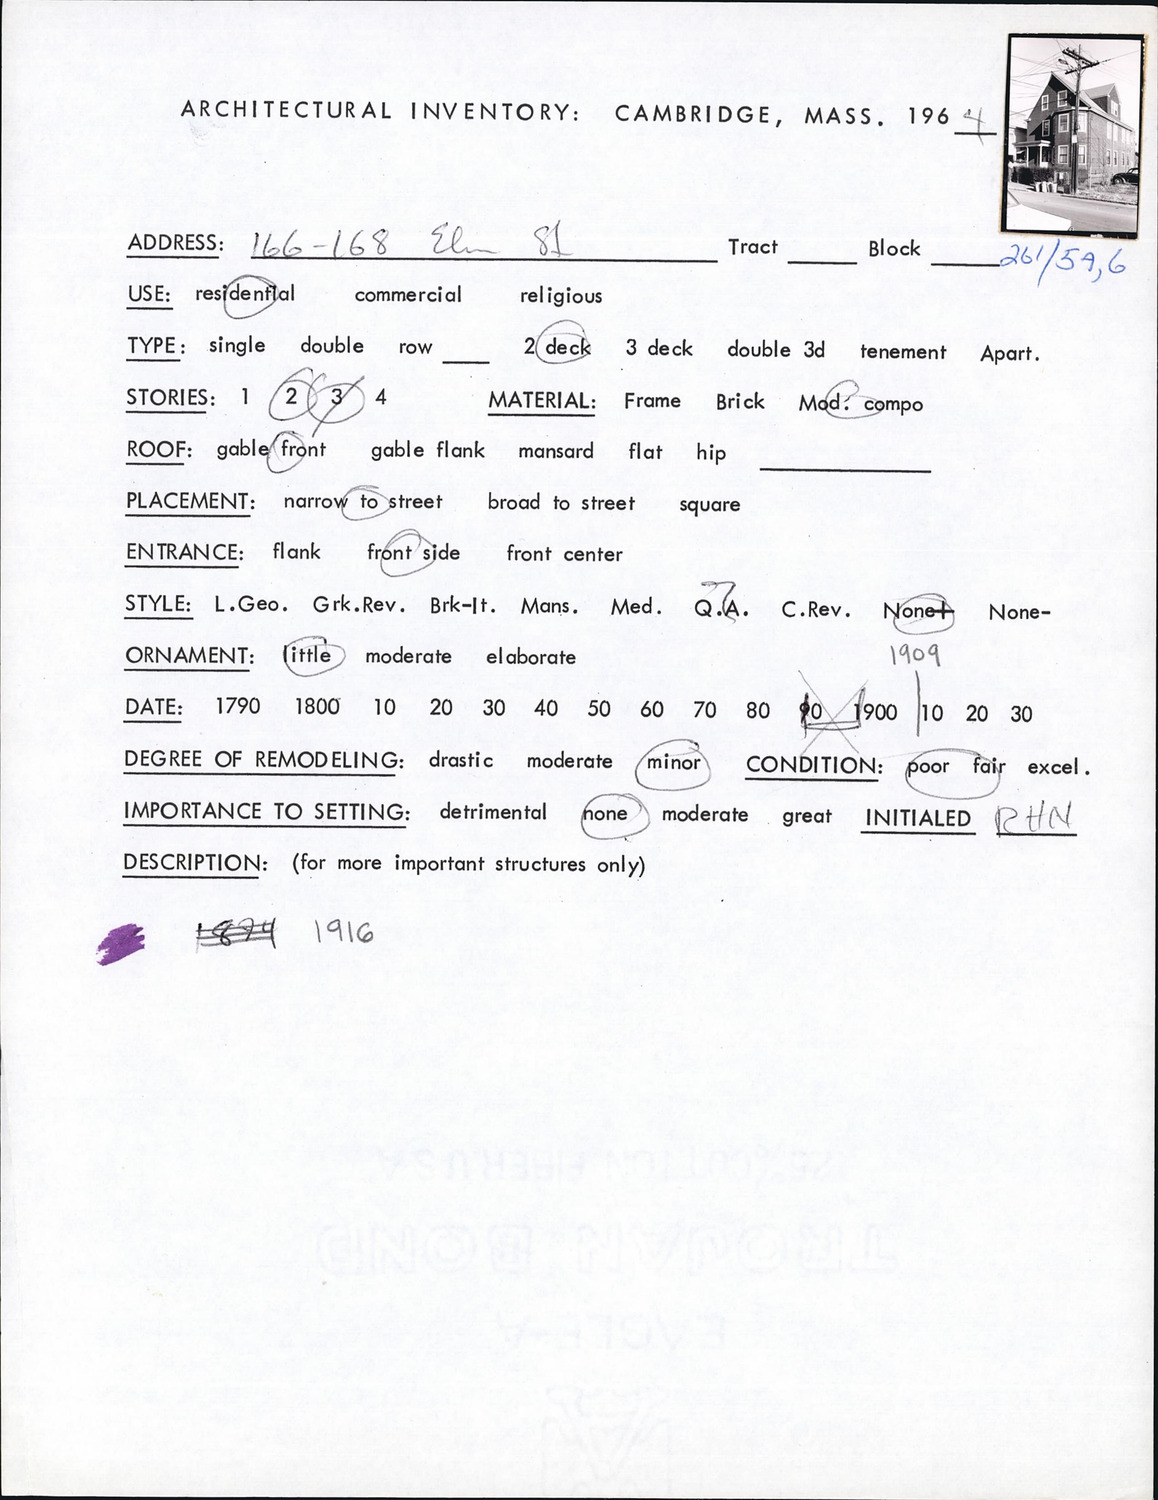 ARCHITECTURAL INVENTORY: CAMBRIDGE, MASS. 1964
ADDRESS: 166-168 Elm St Tract Block 261/59,6
USE: residential commercial religious
TYPE: single double row 2 deck 3 deck double 3d tenement Apart.
STORIES: 1 2 3 4 MATERIAL: Frame Brick Mod. compo
ROOF: gable front gable flank mansard flat hip
PLACEMENT: narrow to street broad to street square
ENTRANCE: flank front side front center
STYLE: L.Geo. Grk.Rev. Brk-It. Mans. Med. Q.A. C.Rev. None+ None-
ORNAMENT: little moderate elaborate 1909
DATE: 1790 1800 10 20 30 40 50 60 70 80 90 1900 10 20 30
DEGREE OF REMODELING: drastic moderate minor CONDITION: poor fair excel.
IMPORTANCE TO SETTING: detrimental none moderate great INITIALED RHN
DESCRIPTION: (for more important structures only)
1894 1916
TROJAN BOND
EAGLE-A